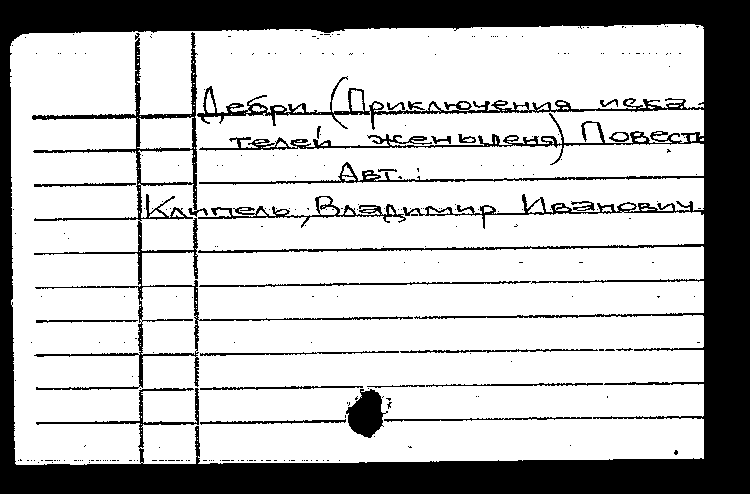 Дебри. (Приключения иска-
телей женьшеня) Повесть
Авт. :
Клипель, Владимир Иванович.